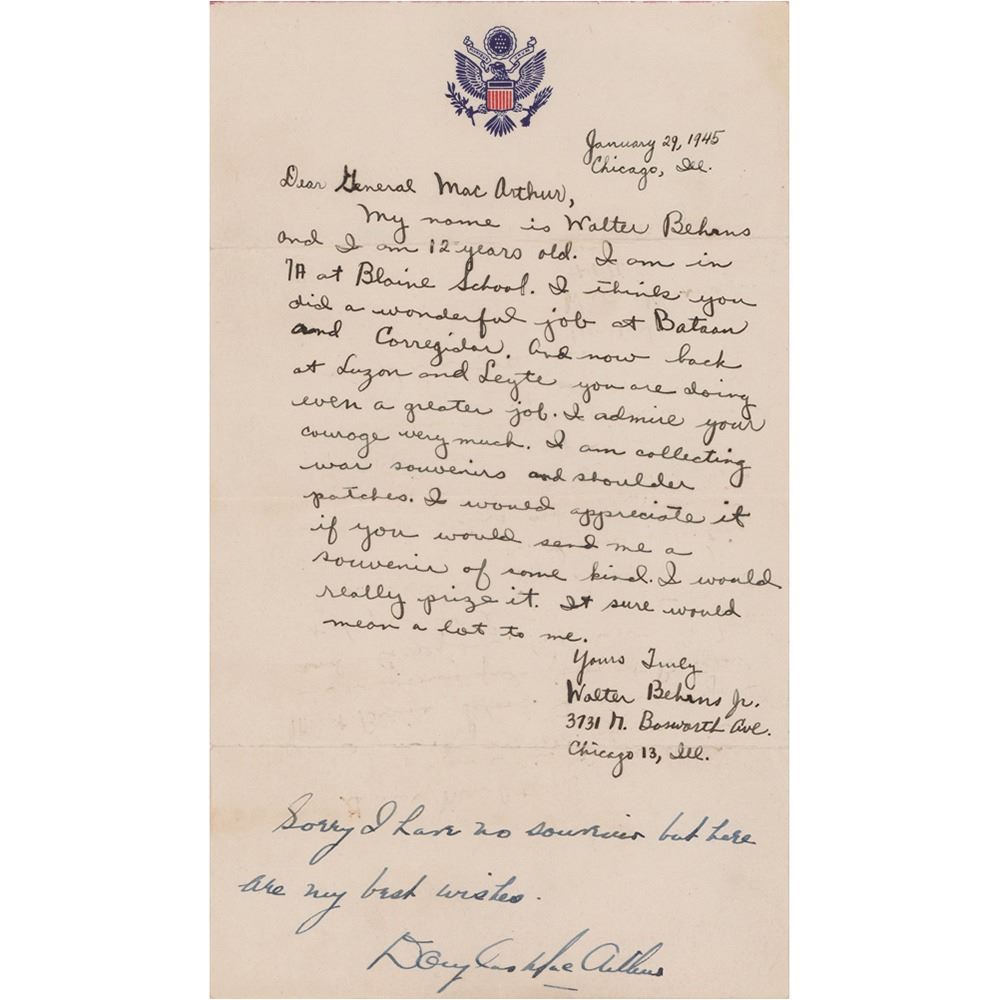 January 29, 1945
Chicago, Ill.
Dear General Mac Arthur,
My name is Walter Behrns
and I am 12 years old. I am in
7A at Blaine School. I think you
did a wonderful job at Bataan
and Corregidor. And now back
at Luzon and Leyte you are doing
even a greater job. I admire your
courage very much. I am collecting
war souvenirs and shoulder
patches. I would appreciate it
if you would send me a
souvenir of some kind. I would
really prize it. It sure would
mean a lot to me.
Yours Truly
Walter Behrns Jr.
3731 N. Bosworth Ave.
Chicago 13, Ill.
Sorry I have no souvenir but here
are my best wishes.
Douglas MacArthur